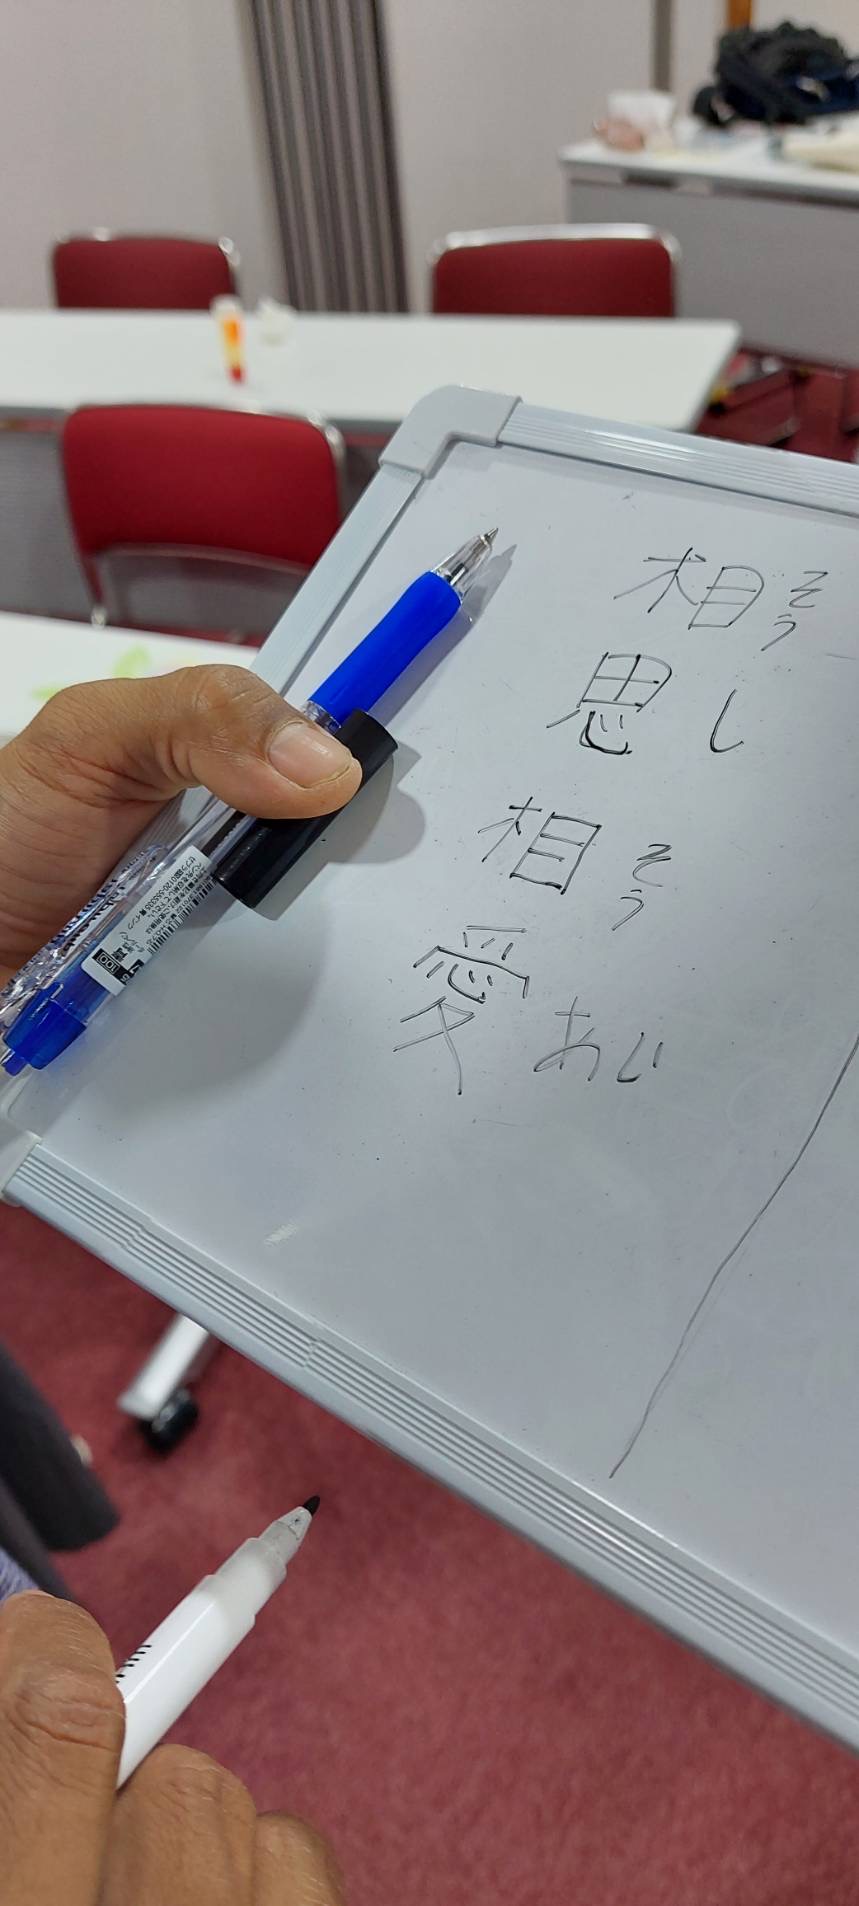 相思相愛
そうしそうあい